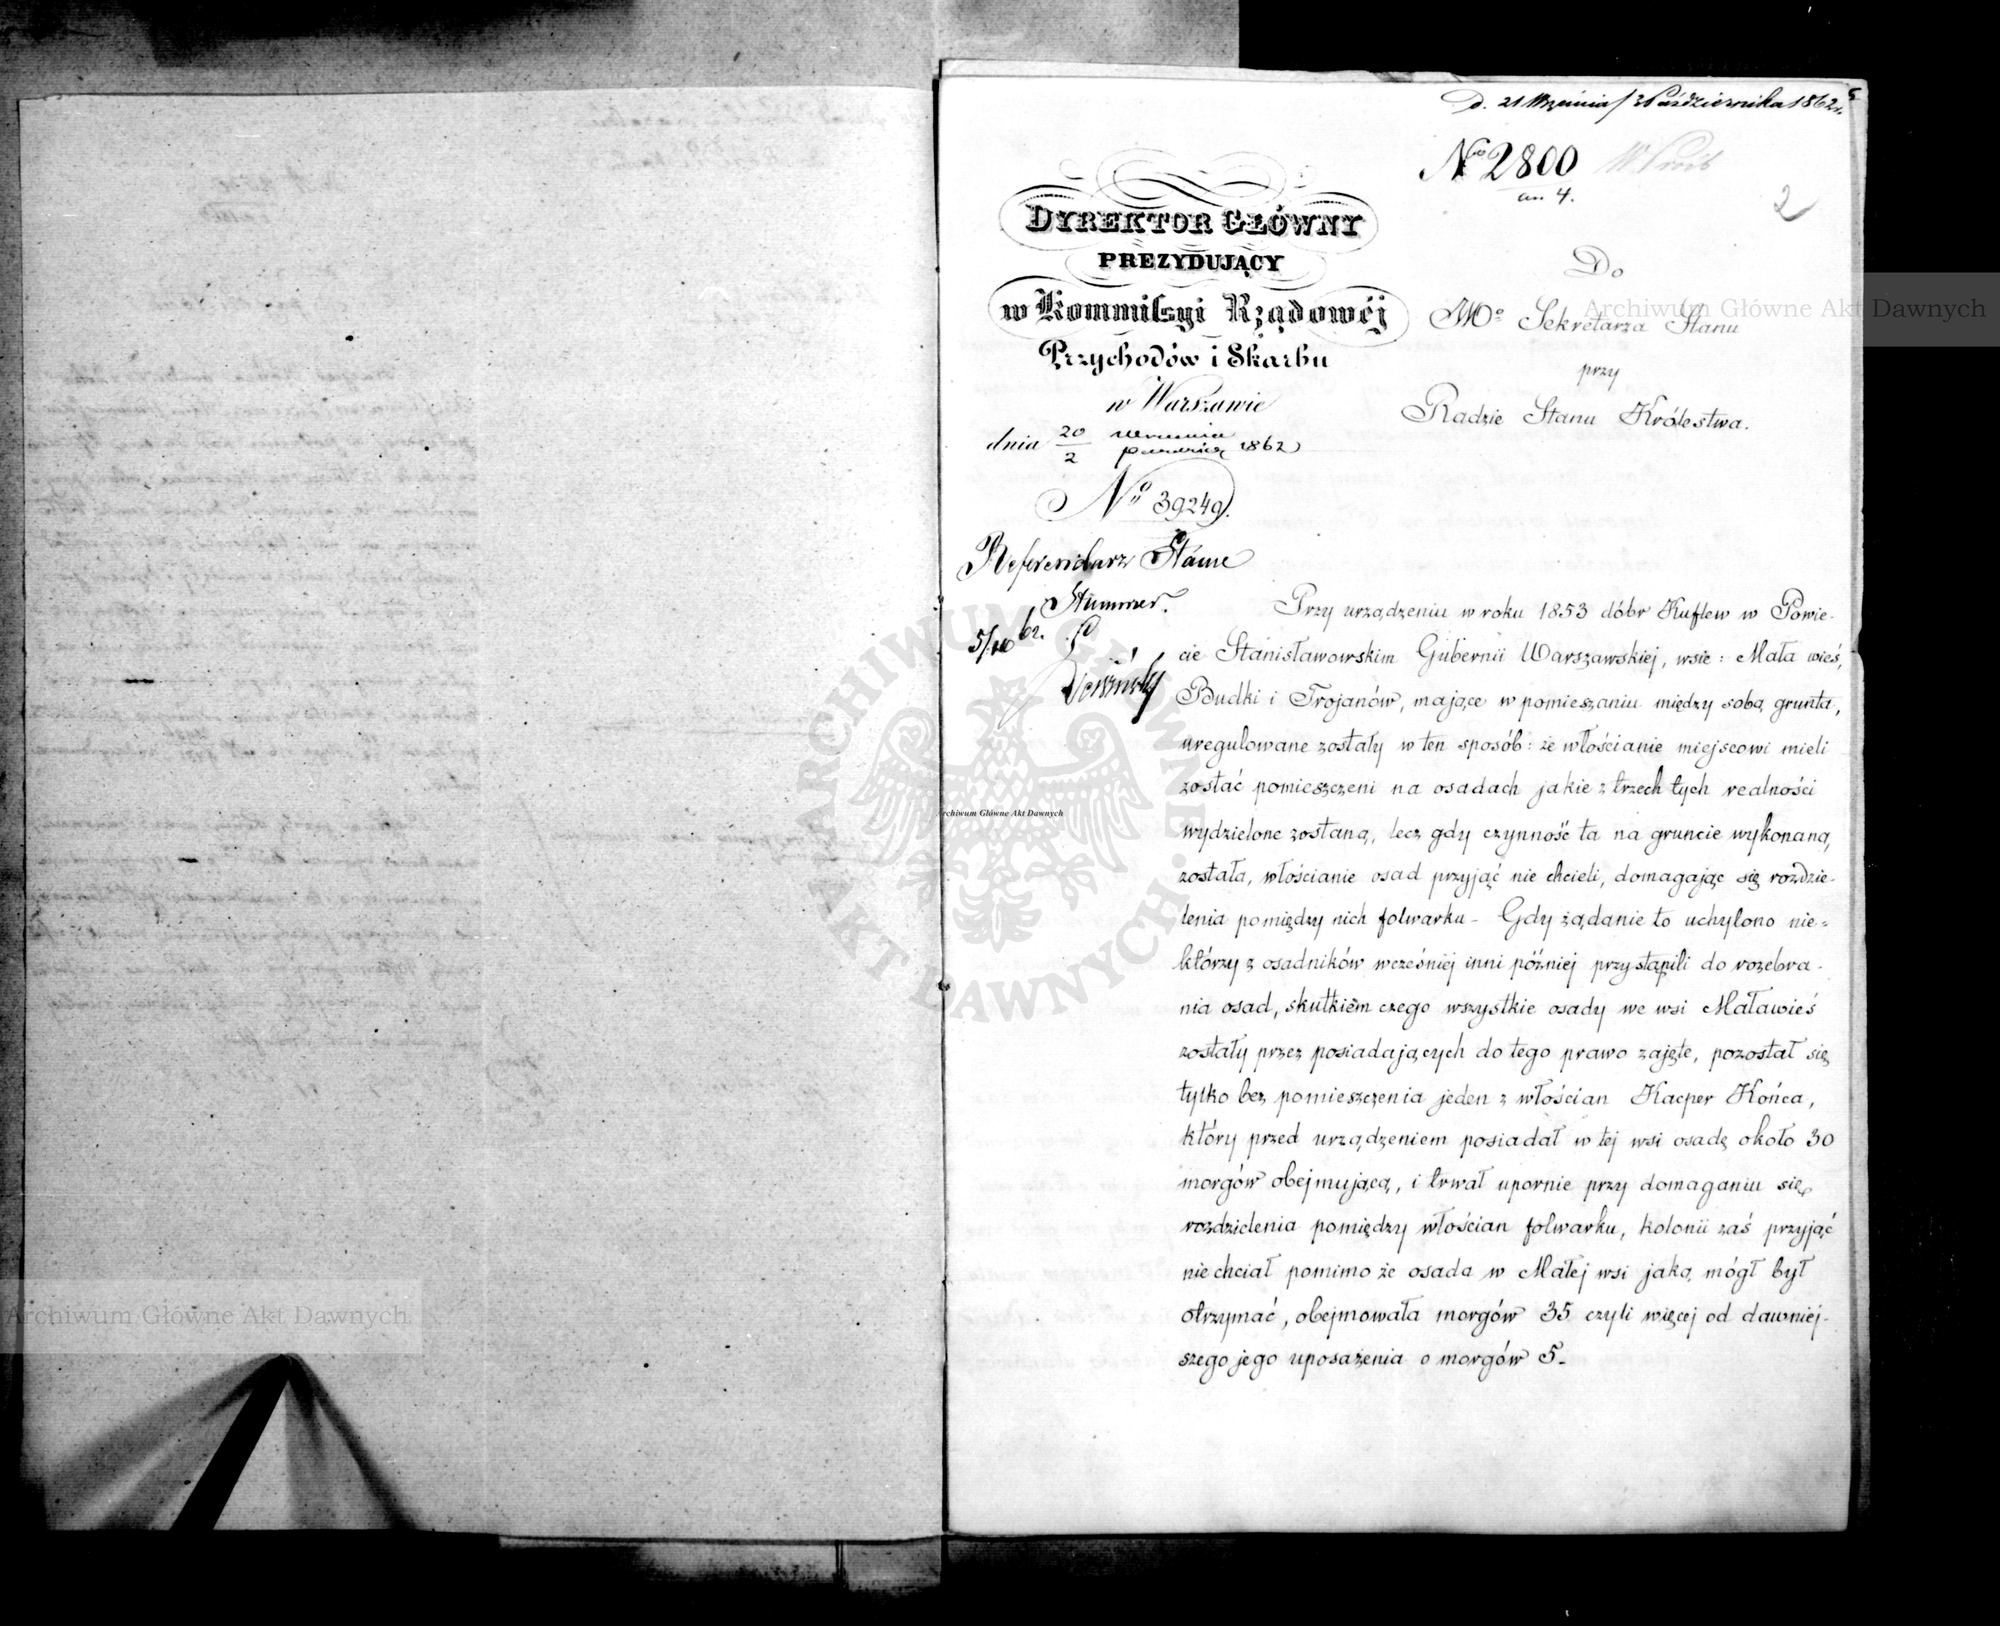 D. 21 Września / 3 Października 1862 r.
No 2800
an 4.
2
DYREKTOR GŁÓWNY
PREZYDUJĄCY
w Kommissyi Rządowéj
Przychodów i Skarbu
w Warszawie
dnia 20/2 września/paździer 1862
No 39249.
Referendarz Stanu
Stummer.
5/10 62.
Do
JWo Sekretarza Stanu
przy
Radzie Stanu Królestwa.
Przy urządzeniu w roku 1853 dóbr Kuflew w Powie-
cie Stanisławowskim Gubernii Warszawskiej, wsie: Mała wieś,
Budki i Trojanów, mające w pomieszaniu między sobą grunta,
uregulowane zostały w ten sposób: że włościanie miejscowi mieli
zostać pomieszczeni na osadach jakie z trzech tych realności
wydzielone zostaną, lecz gdy czynność ta na gruncie wykonaną
została, włościanie osad przyjąć nie chcieli, domagając się rozdzie-
lenia pomiędzy nich folwarku - Gdy żądanie to uchylono nie-
którzy z osadników wcześniej inni później przystąpili do rozebra-
nia osad, skutkiem czego wszystkie osady we wsi Maławieś
zostały przez posiadających do tego prawo zajęte, pozostał się
tylko bez pomieszczenia jeden z włościan Kacper Końca,
który przed urządzeniem posiadał w tej wsi osadę około 30
morgów obejmującą, i trwał upornie przy domaganiu się
rozdzielenia pomiędzy włościan folwarku, kolonii zaś przyjąć
nie chciał pomimo że osada w Małej wsi jaką mógł był
otrzymać, obejmowała morgów 35 czyli więcej od dawniej-
szego jego uposażenia o morgów 5.
Archiwum Główne Akt Dawnych
ARCHIWUM GŁÓWNE AKT DAWNYCH
Archiwum Główne Akt Dawnych
Archiwum Główne Akt Dawnych